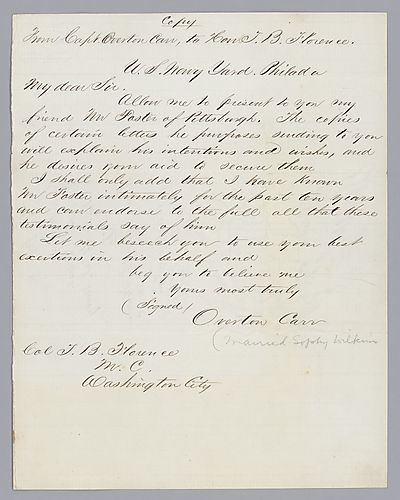 Copy
From Capt. Overton Carr, to Hon. T. B. Florence.
U. S. Navy Yard. Philada
My dear Sir.
Allow me to present to you my
friend Mr Foster of Pittsburgh. The copies
of certain letters he purposes sending to you
will explain his intentions and wishes, and
he desires your aid to secure them
I shall only add that I have known
Mr Foster intimately for the past ten years
and can endorse to the full all that these
testimonials say of him
Let me beseech you to use your best
exertions in his behalf and
beg you to believe me
Yours most truly
(Signed)
Overton Carr
(Married Sophy Wilkins
Col T. B. Florence
M. C.
Washington City